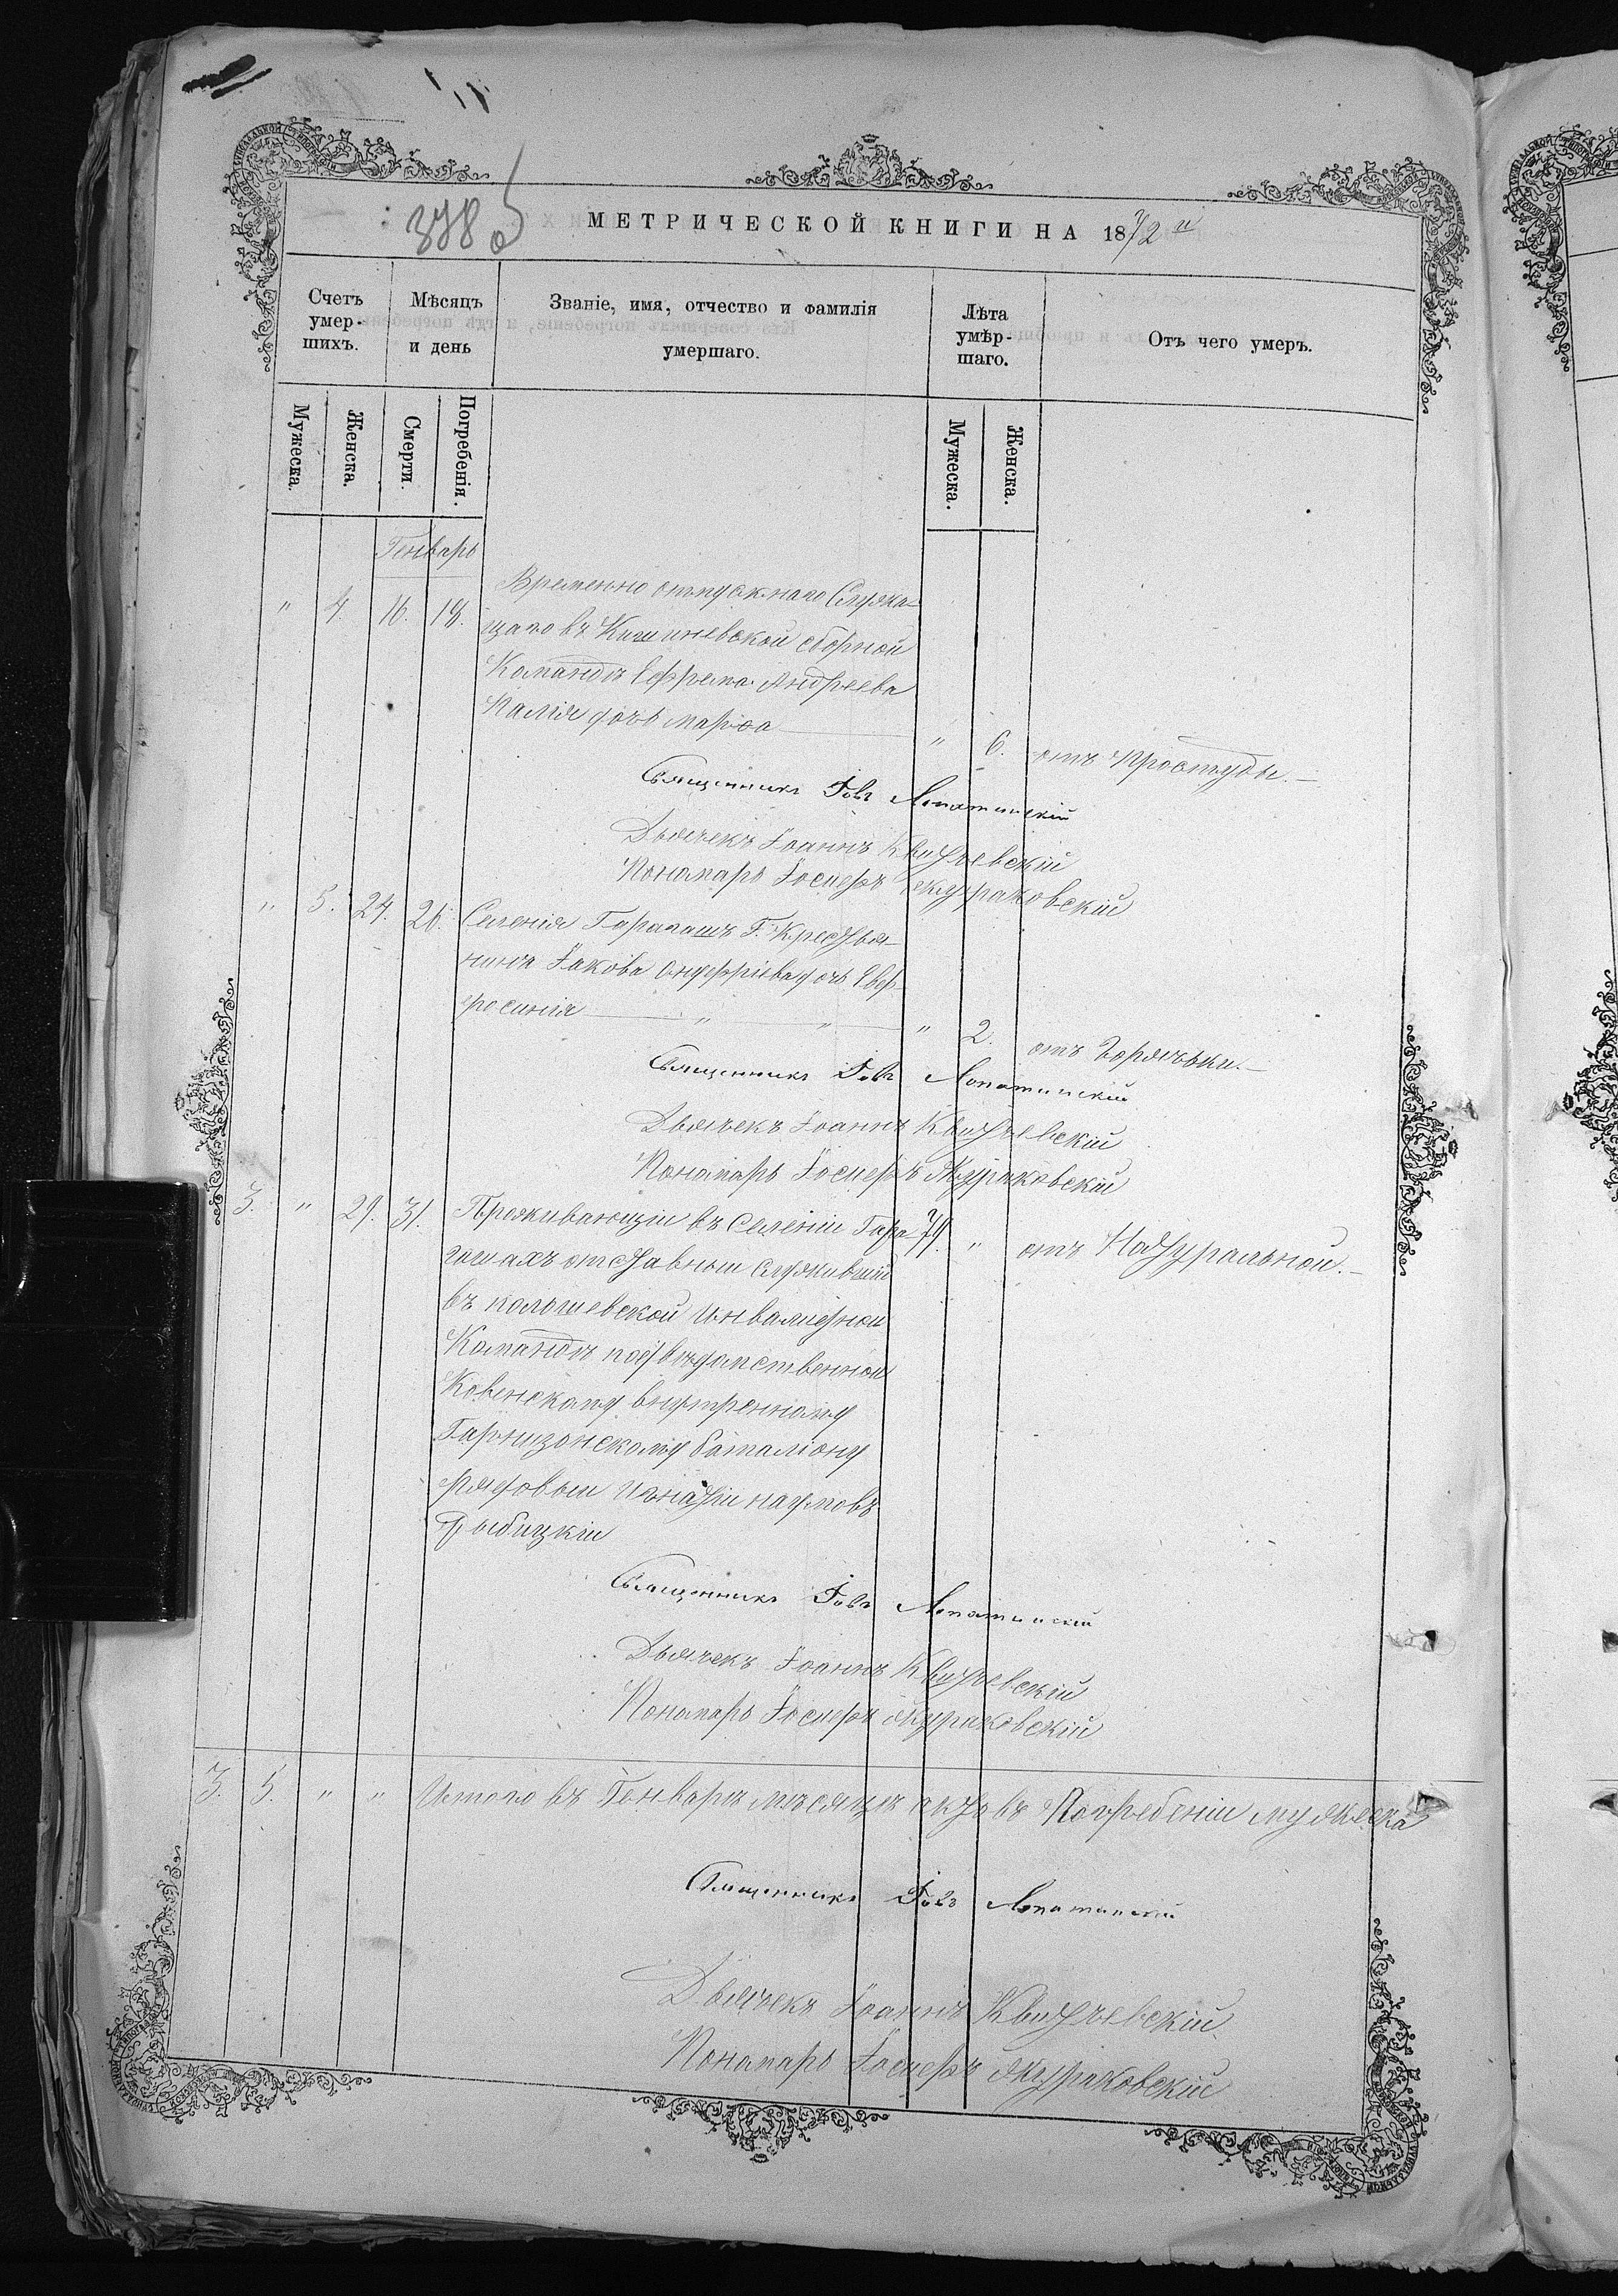 378 об
МЕТРИЧЕСКОЙ КНИГИ НА 1872 й
Счетъ умер-шихъ.
Мѣсяцъ и день
Званіе, имя, отчество и фамилія умершаго.
Лѣта умер-шаго.
Отъ чего умеръ.
Мужеска.
Женска.
Смерти.
Погребенія.
Мужеска.
Женска.
Генварь
" 4. 16. 18. Временно отпускнаго Служа-
щаго въ Кишиневской сборной
Командѣ Ефрема Андреева
Палія дочь Марѳа " 6. отъ Простуды.
Священникъ Іовъ Лопатинскій
Дьячекъ Іоаннъ Квитчевскій
Пономарь Іосифъ
" 5. 24. 26. Селенія Гарапашъ Г. Крестья-
нина Іакова Онуфріева дочь Евф-
росинія " " " 2. отъ Горячьки.
Священникъ Іовъ Лопатинскій
Дьячекъ Іоаннъ Квитчевскій
Пономарь Іосифъ
3. " 29. 31. Проживающій въ Селеніи Гара- 79. " отъ Натуральной.
отставный служившій
въ Инвалидной
Командѣ подвѣдомственной
Ковенскому внутренному
Гарнизонскому баталіону
рядовый Игнатій Наумовъ
Рыбицкій
Священникъ Іовъ Лопатинскій
Дьячекъ Іоаннъ Квитчевскій
Пономарь Іосифъ
3. 5. " " Итого въ Генварѣ мѣсяцѣ актовъ Погребеніи мужеска
Священникъ Іовъ Лопатинскій
Дьячекъ Іоаннъ Квитчевскій
Пономарь Іосифъ